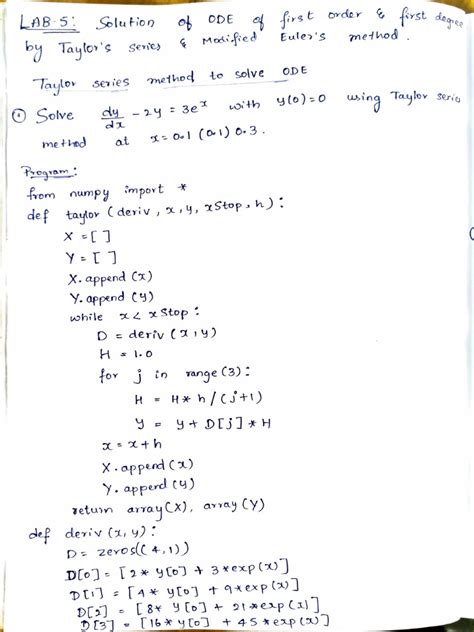 LAB-5: Solution of ODE of first order & first degree
by Taylor's series & Modified Euler's method.
Taylor series method to solve ODE
① Solve dy/dx - 2y = 3eˣ with y(0)=0 using Taylor series
method at x = 0.1 (0.1) 0.3.
Program:
from numpy import *
def taylor (deriv, x, y, xStop, h):
X = [ ]
Y = [ ]
X.append (x)
Y.append (y)
while x < xStop:
D = deriv (x, y)
H = 1.0
for j in range (3):
H = H * h / (j+1)
Y = Y + D[j] * H
x = x + h
X.append (x)
Y.append (y)
return array(X), array (Y)
def deriv (x, y):
D = zeros((4,1))
D[0] = [2 * y[0] + 3*exp(x)]
D[1] = [4 * y[0] + 9*exp(x)]
D[2] = [8 * y[0] + 21*exp(x)]
D[3] = [16 * y[0] + 45*exp(x)]